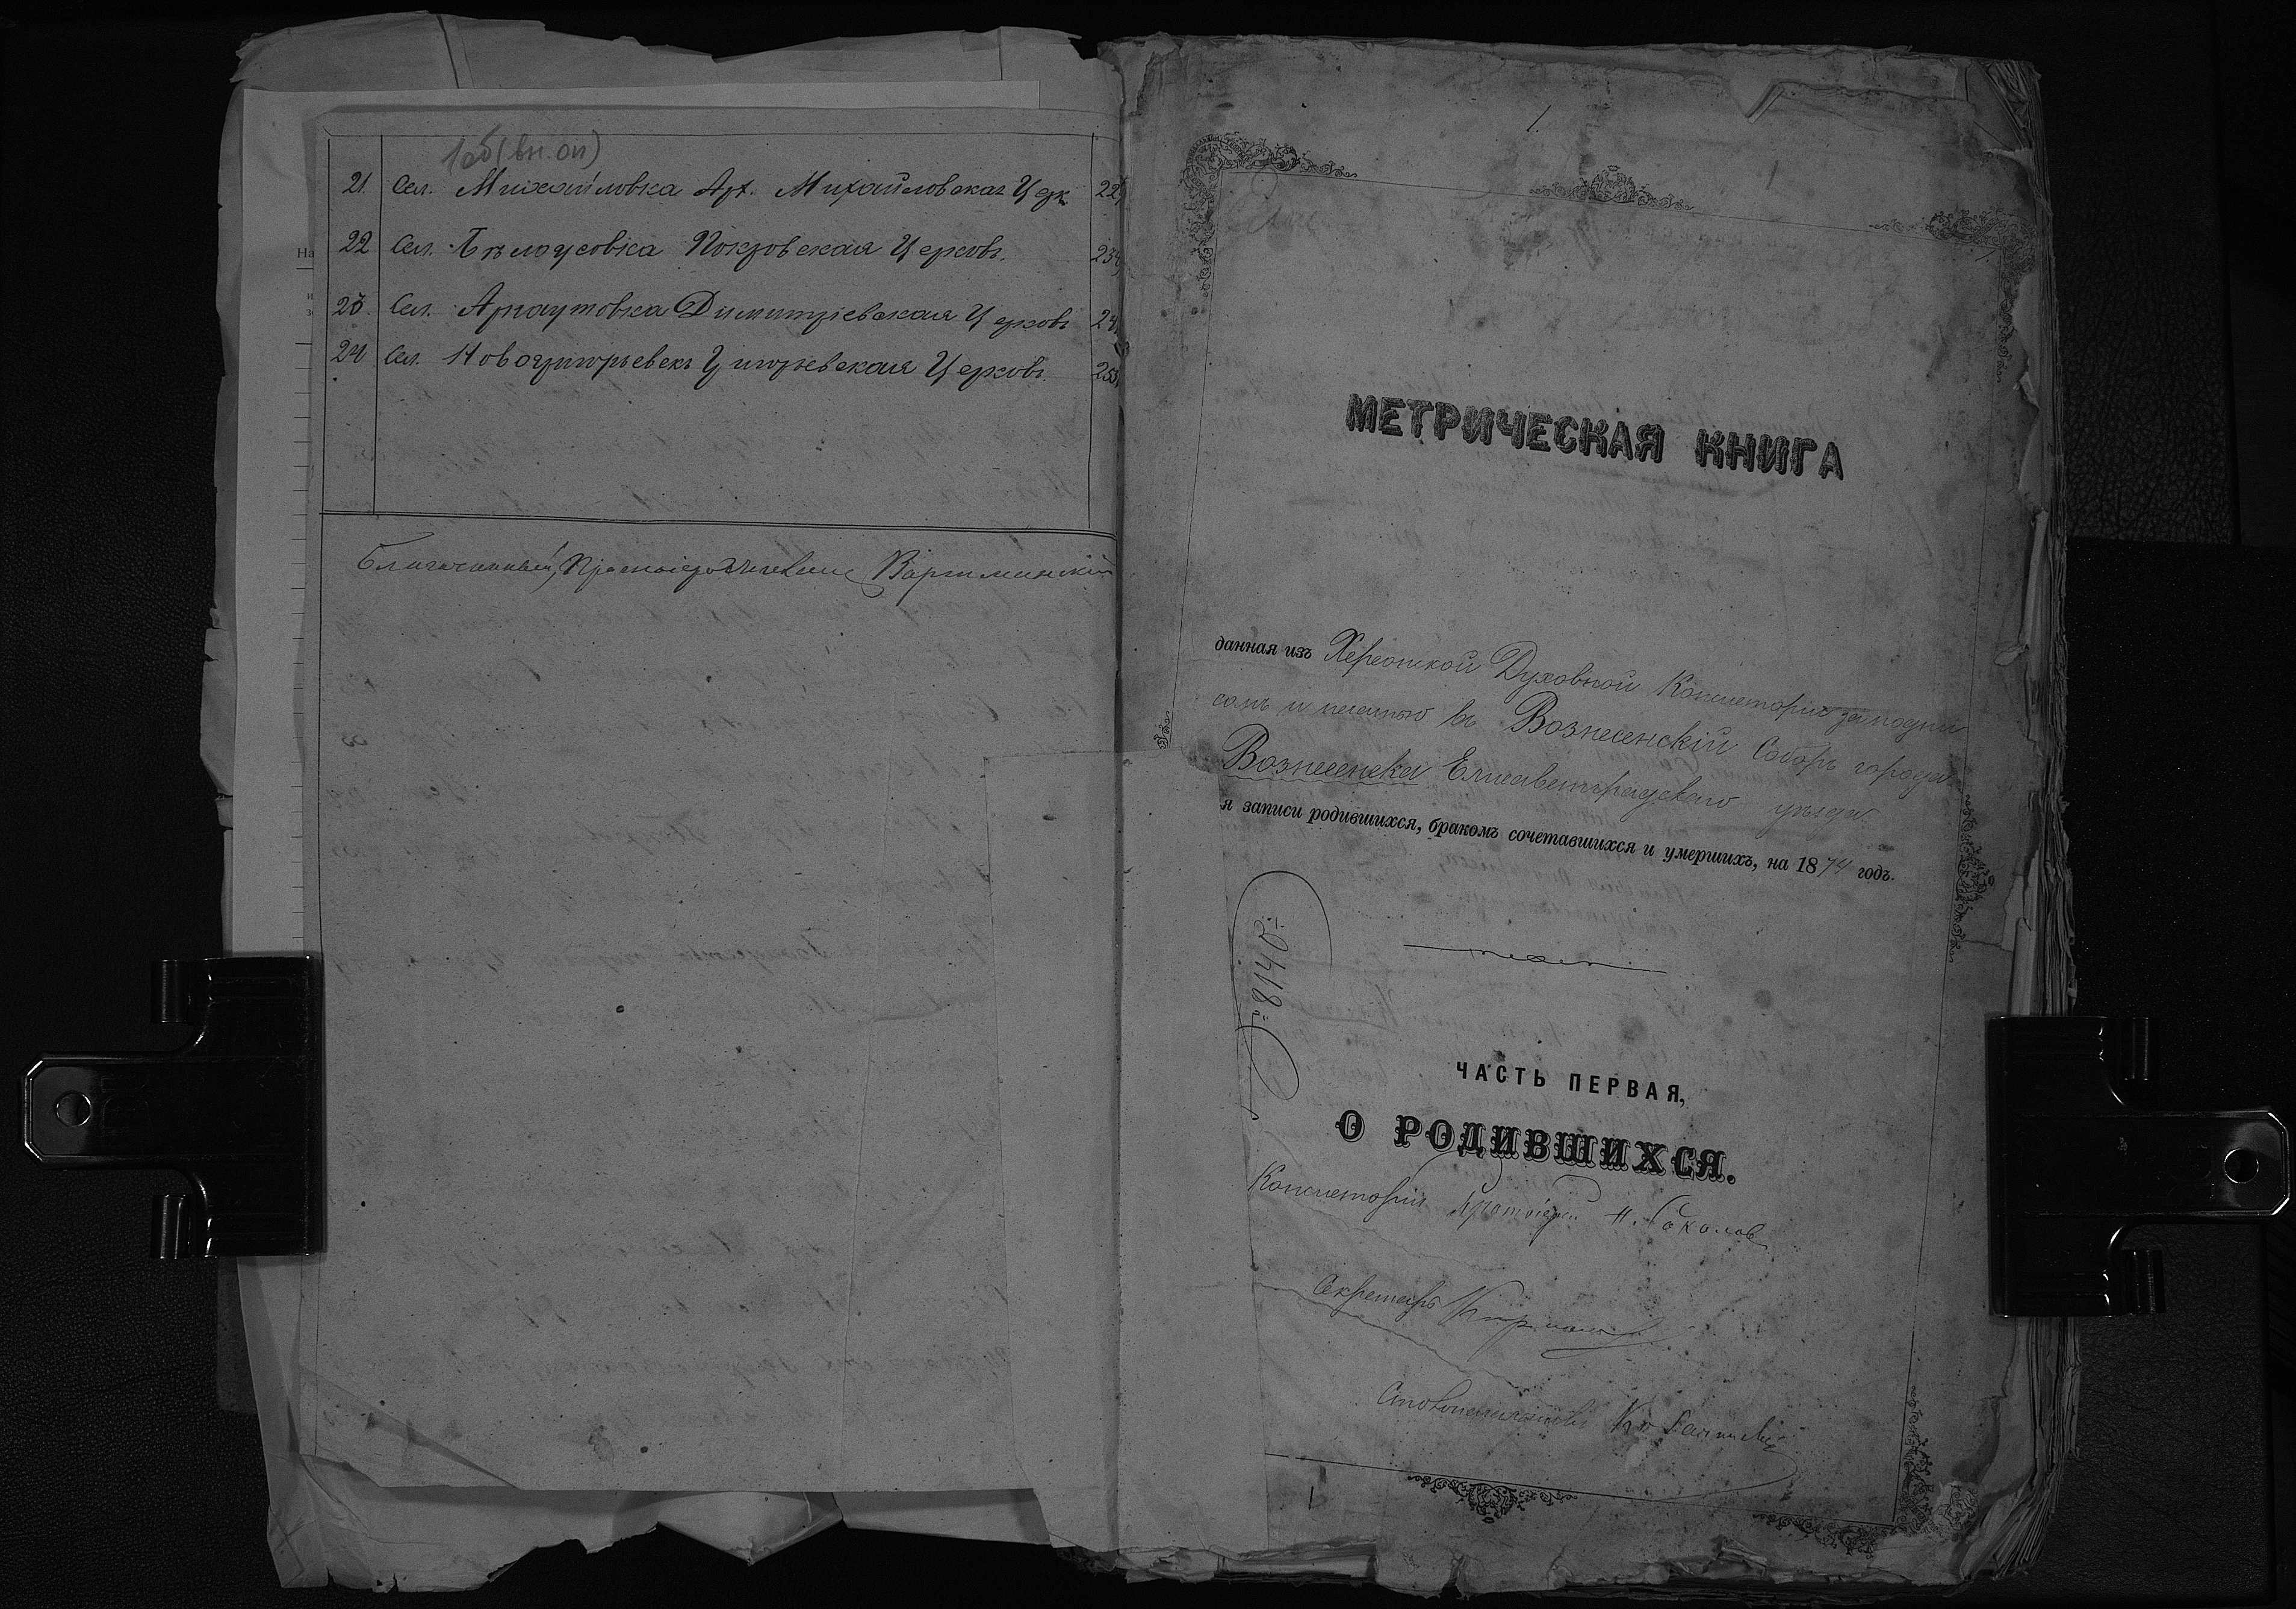 1об (вн. оп)
21. Сел. Михайловка Арх. Михайловская Церк 22
22 Сел. Бѣлоусовка Покровская Церковь. 234
23. Сел. Арнаутовка Димитріевская Церковь 24
24 Сел. Новогригорьевскъ Григорьевская Церковь. 253
Благочинный,
1.
1
МЕТРИЧЕСКАЯ КНИГА
данная изъ Херсонской Духовной Консисторіи за подпи
сомъ и печатью въ Вознесенскій Соборъ города
Вознесенска Елисаветградскаго уѣзда
я записи родившихся, бракомъ сочетавшихся и умершихъ, на 1874 годъ.
8140
ЧАСТЬ ПЕРВАЯ,
О РОДИВШИХСЯ.
Консисторіи Протоіерей Н. Соколов
Секретарь
Столоначальникъ
1